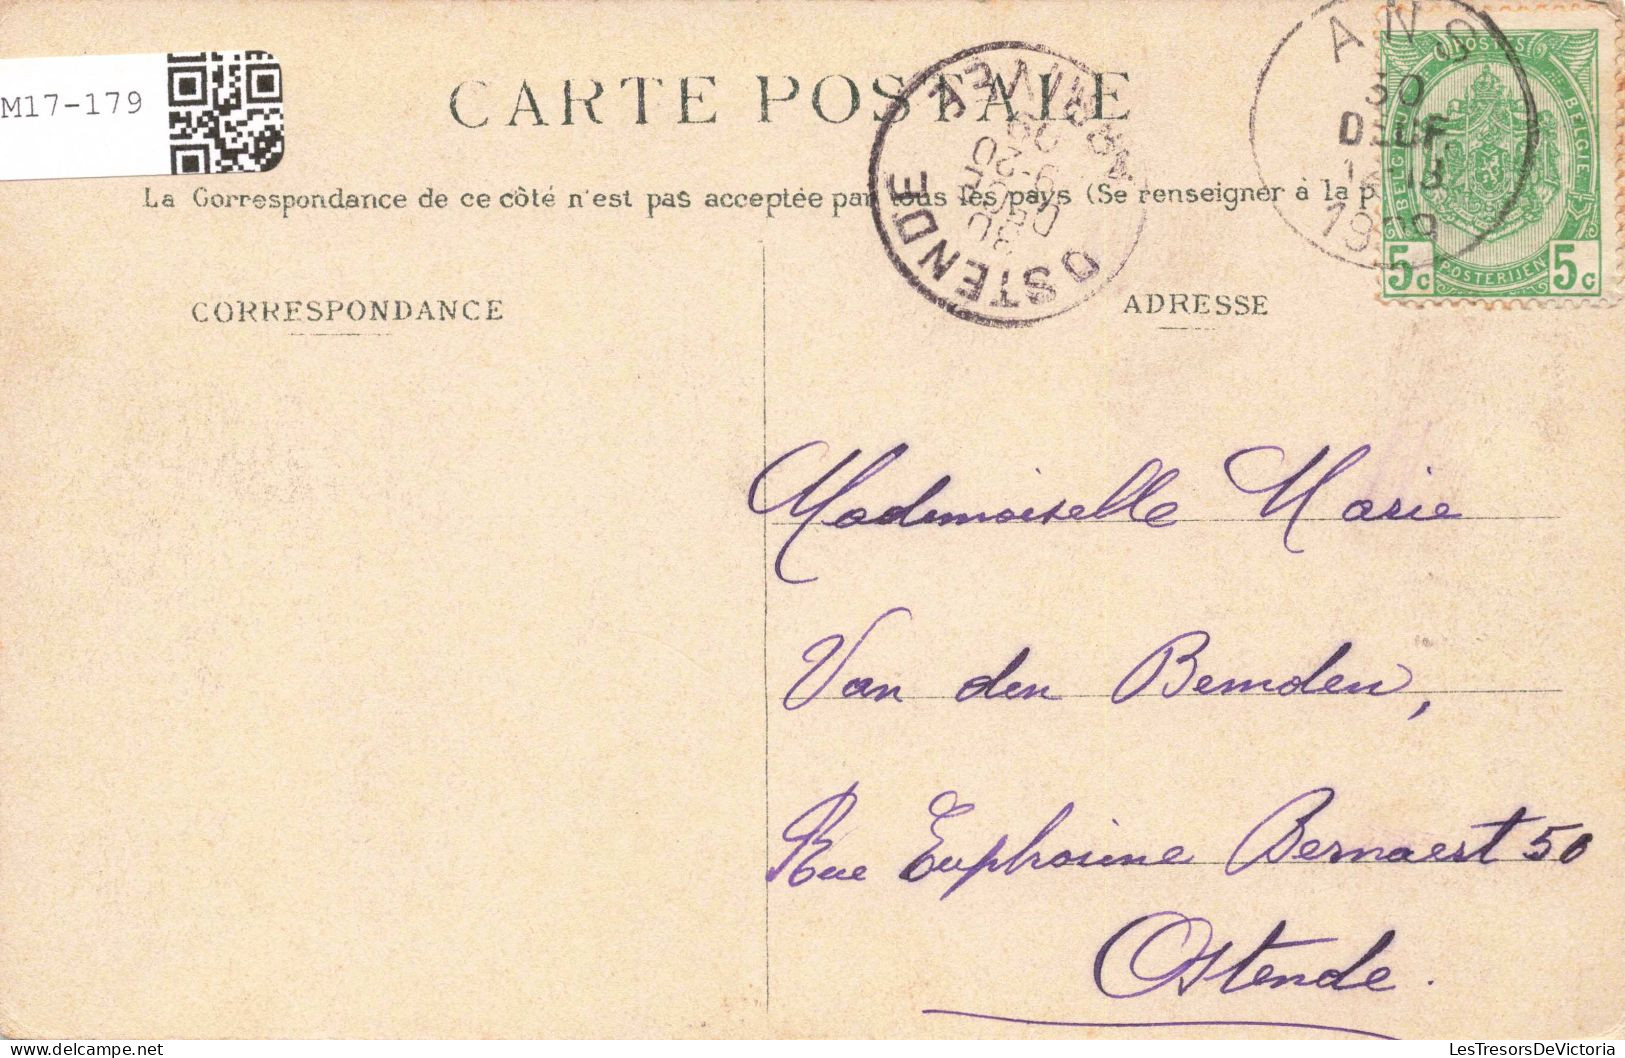 M17-179
CARTE POSTALE
La Correspondance de ce côté n'est pas acceptée par tous les pays (Se renseigner à la p
CORRESPONDANCE
ADRESSE
OSTENDE
ANS
30
1909
POSTES
BELGIQUE
BELGIE
POSTERIJEN
5c 5c
Mademoiselle Marie
Van den Bemden,
Rue Euphrosine Bernaert 50
Ostende.
LesTresorsDeVictoria